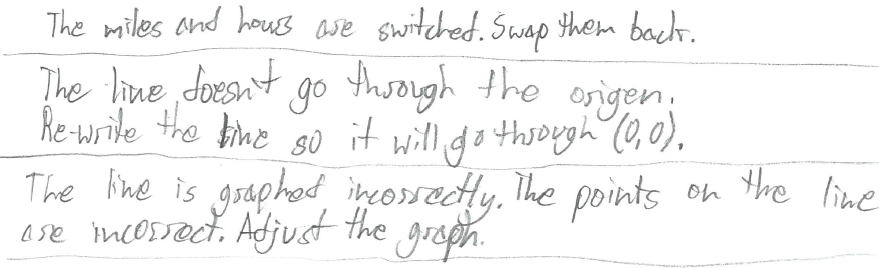 The miles and hours are switched. Swap them back.
The line doesn't go through the origen.
Re-write the line so it will go through (0,0).
The line is graphed incorrectly. The points on the line
are incorrect. Adjust the graph.